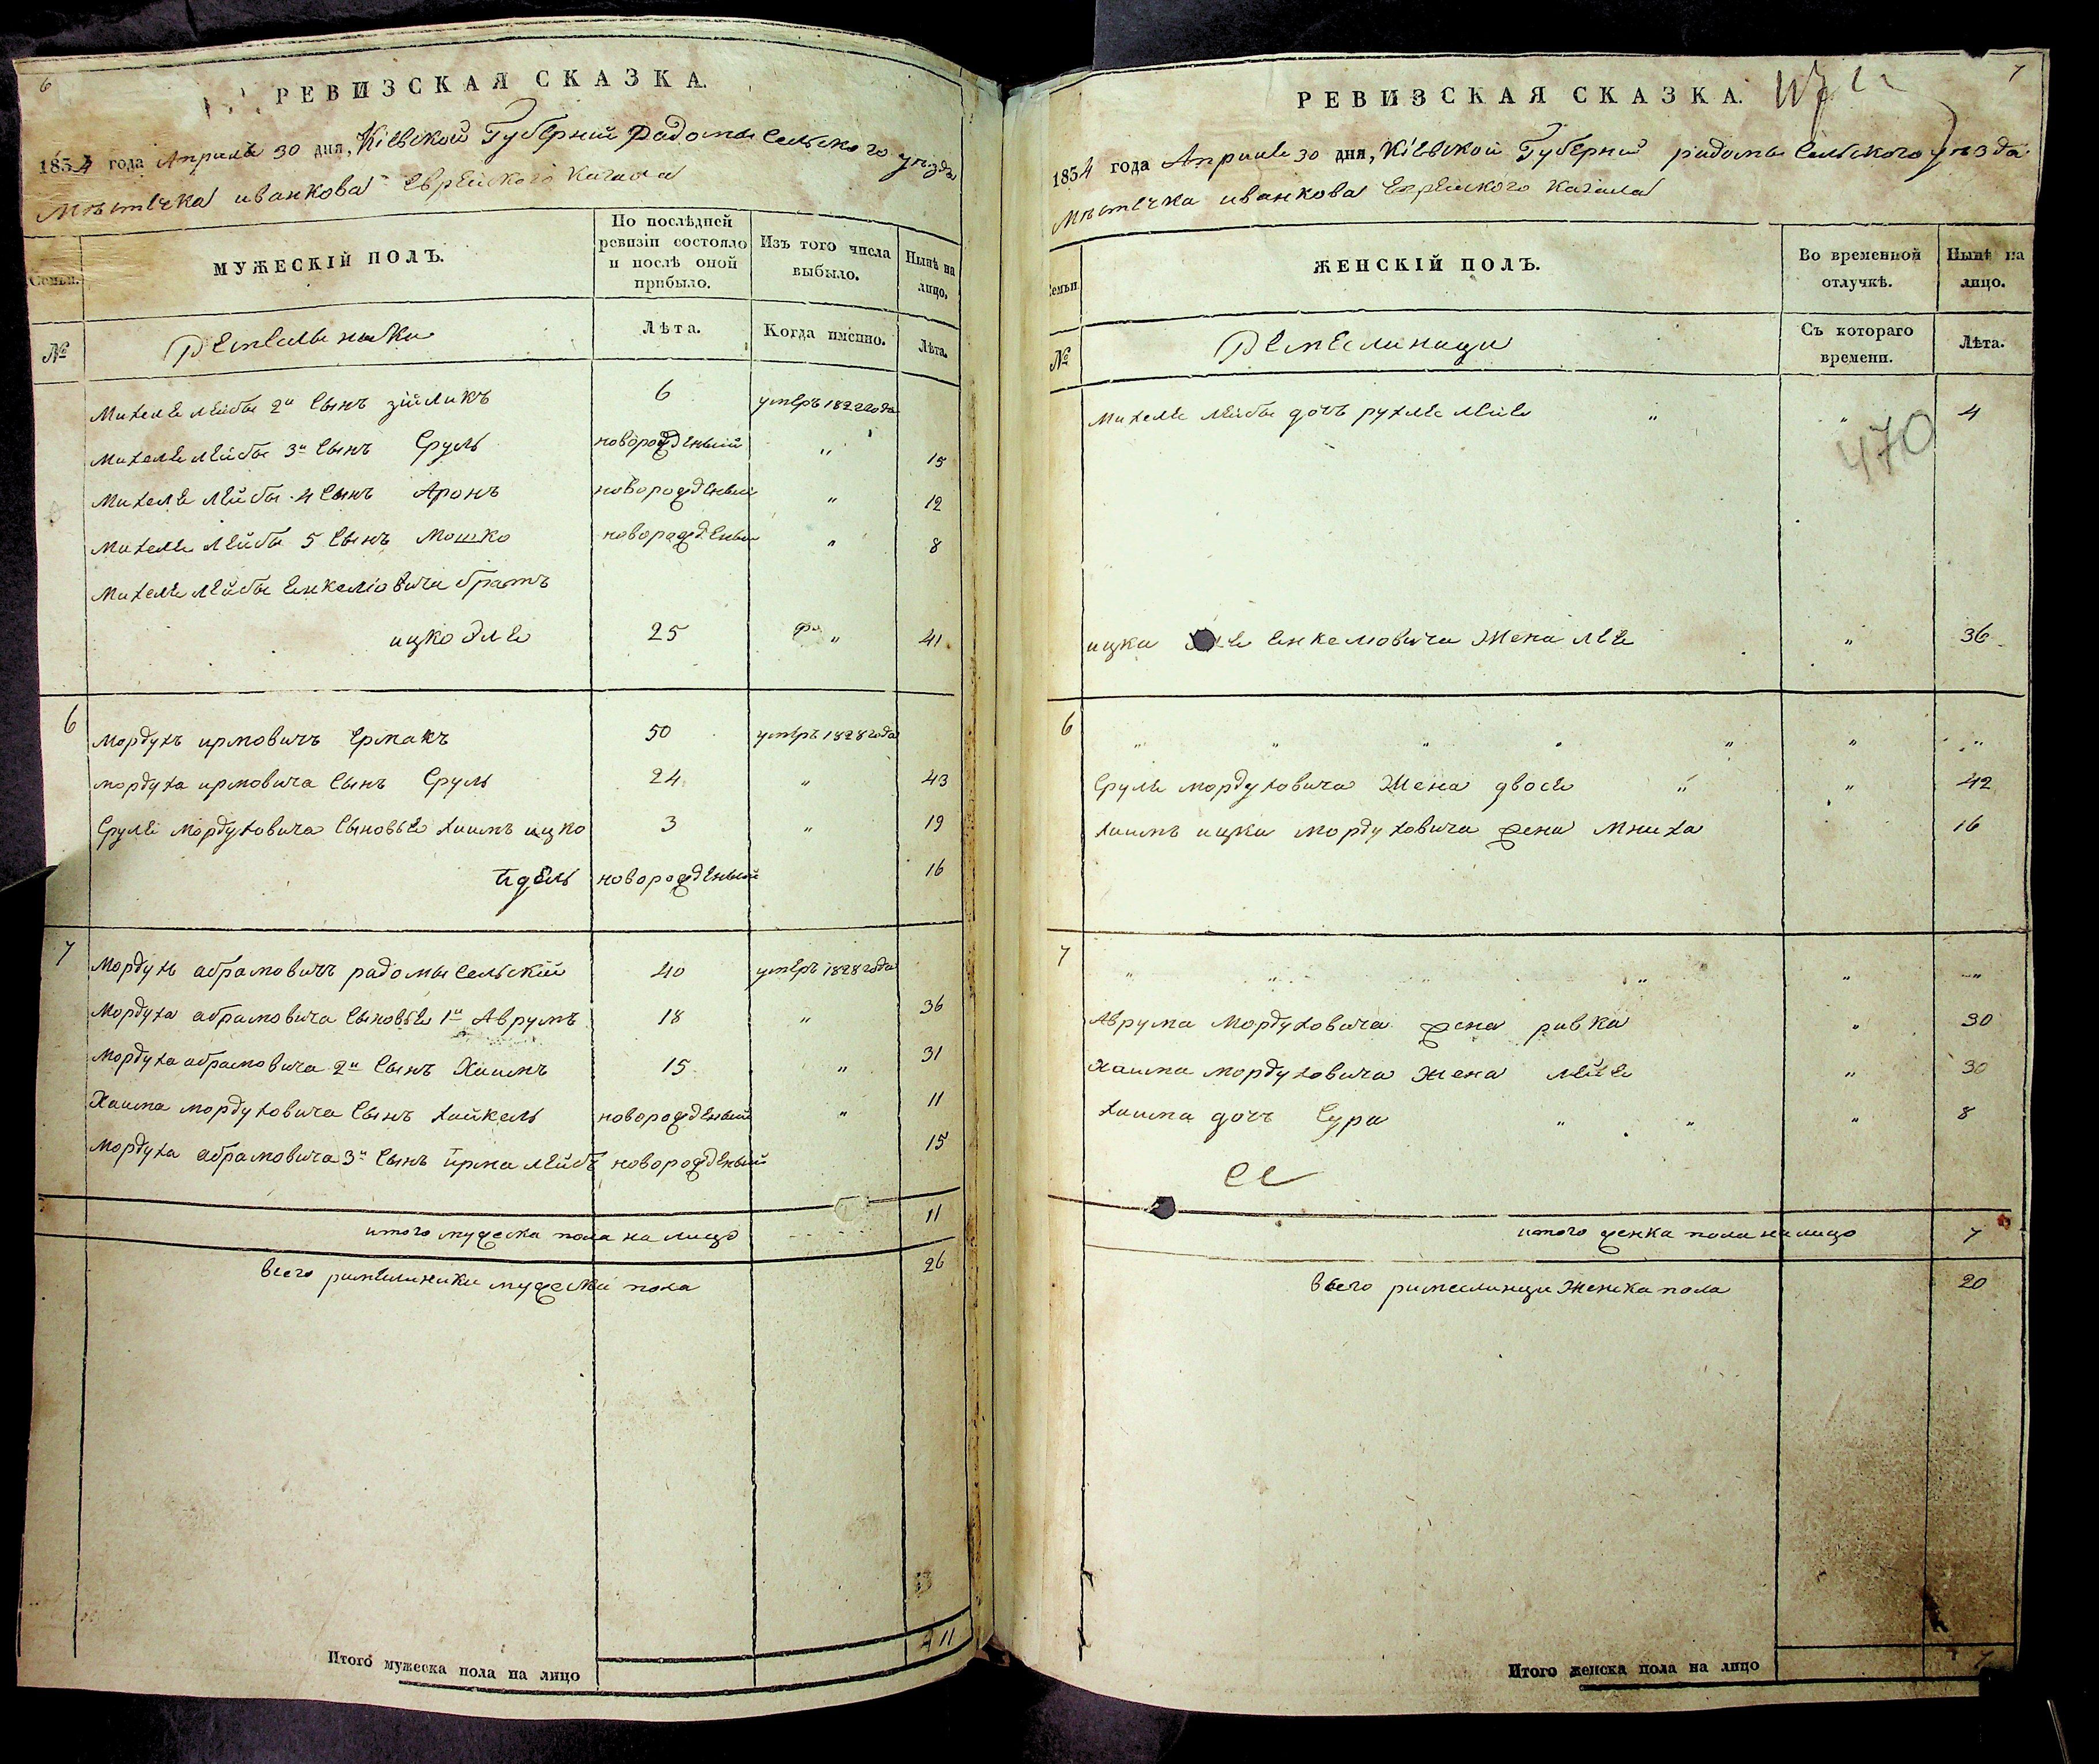 6
РЕВИЗСКАЯ СКАЗКА.
1834 года Апреля 30 дня, Кіевской Губерніи Радомысельского уезда
Мѣстечка иванкова Еврейского Кагала
Семьи.
МУЖЕСКІЙ ПОЛЪ.
По послѣдней ревизіи состояло и послѣ оной прибыло.
Изъ того числа выбыло.
Нынѣ на лицо.
№
Лѣта.
Когда именно.
Лѣта.
Михеля Лейбы 2й Сынъ зйликъ 6 умеръ 1822 года
Михеля Лейбы 3й Сынъ Сруль новорожденый " 15
Михеля Лейбы 4 Сынъ Аронъ новорожденый " 12
Михеля Лейбы 5 Сынъ Мошко новорожденый " 8
Михеля Лейбы Енкеліовича братъ
ицко Эля 25 " 41
6 Мордухъ ирмовичъ Ермакъ 50 умеръ 1828 года
мордуха ирмовича Сынъ Сруль 24 " 43
Сруля Мордуховича Сыновья хаимъ ицко 3 " 19
йдель новорожденый 16
7 Мордухъ абрамовичъ радомысельскій 40 умеръ 1828 года
Мордуха абрамовича Сыновья 1й Аврумъ 18 " 36
Мордуха абрамовича 2й Сынъ Хаимъ 15 " 31
Хаима мордуховича Сынъ хайкель новорожденый " 11
Мордуха абрамовича 3й Сынъ йрма лейбъ новорожденый 15
итого мужеска пола на лицо 11
всего мужеска пола 26
Итого мужеска пола на лицо 11
7
РЕВИЗСКАЯ СКАЗКА.
1834 года Апреля 30 дня, Кіевской Губерніи радомысельского уезда
Мѣстечка иванкова Еврейского Кагала
Семьи
ЖЕНСКІЙ ПОЛЪ.
Во временной отлучкѣ.
Нынѣ на лицо.
№
Съ котораго времени.
Лѣта.
Михеля Лейбы дочъ рухля лея " " 4
470
ицка Енкелювича Жена лея " 36
6 " " " " " " "
Сруля мордуховича Жена двося " " 42
хаимъ ицка мордуховича жена Мниха 16
7 " " " " " "
Аврума Мордуховича жена ривка " 30
Хаима мордуховича жена лея " 30
хаима дочъ Сура " " " 8
итого женска пола на лицо 7
всего Женска пола 20
Итого женска пола на лицо 7